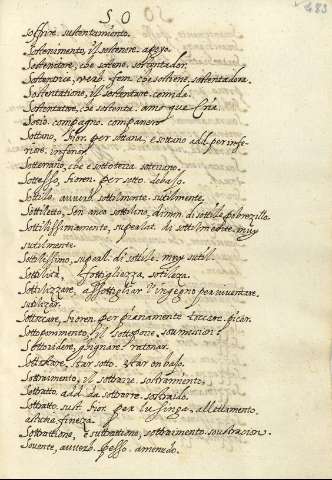 SO
483
soffrire sustentamiento.
Sostenimento, il sostenere. apoyo.
Sostenitore, che sostene. sostentador.
Sostenitrice, verb. fem. che sostiene. sustentadora.
Sostentatione, il sostentare. comida.
Sostentatore, che sostenta. amo que Cria.
Sotio. compagno. compañero
Sottano, fior. per sottana, e sottano add. per infe-
riore. inferior
Sotterraneo, che è sotto terra. soterraneo.
Sottesso, fioren. per sotto. debaxo.
Sottile, avverb. sottilmente. sutilmente,
Sottiletto, sen anco sottilino, dimin. di sottile.
Sottilissimamente, superlat. di sottilmente. muy
sutilmente.
Sottilissimo, superl. di sottile. muy sutil.
Sottilità, sottigliezza, sotileza.
Sottilizzare, assottigliar l'ingegno per investigare.
sutilizar.
Sottomissione, il sottoporre, soumision.
Sottoridere, ghignare.
Sottostare, star sotto. star en baxo.
Sottraimento, il sottrarre. sostraimiento.
Sottratto, add. da sottrarre. sostraido.
Sottratto, sust. fior. per lusinga, allettamento.
astucia. fineza.
Sottrattione, e suttratione, sottraimento. soustracion.
Sovente, avverb. spesso. amenudo.